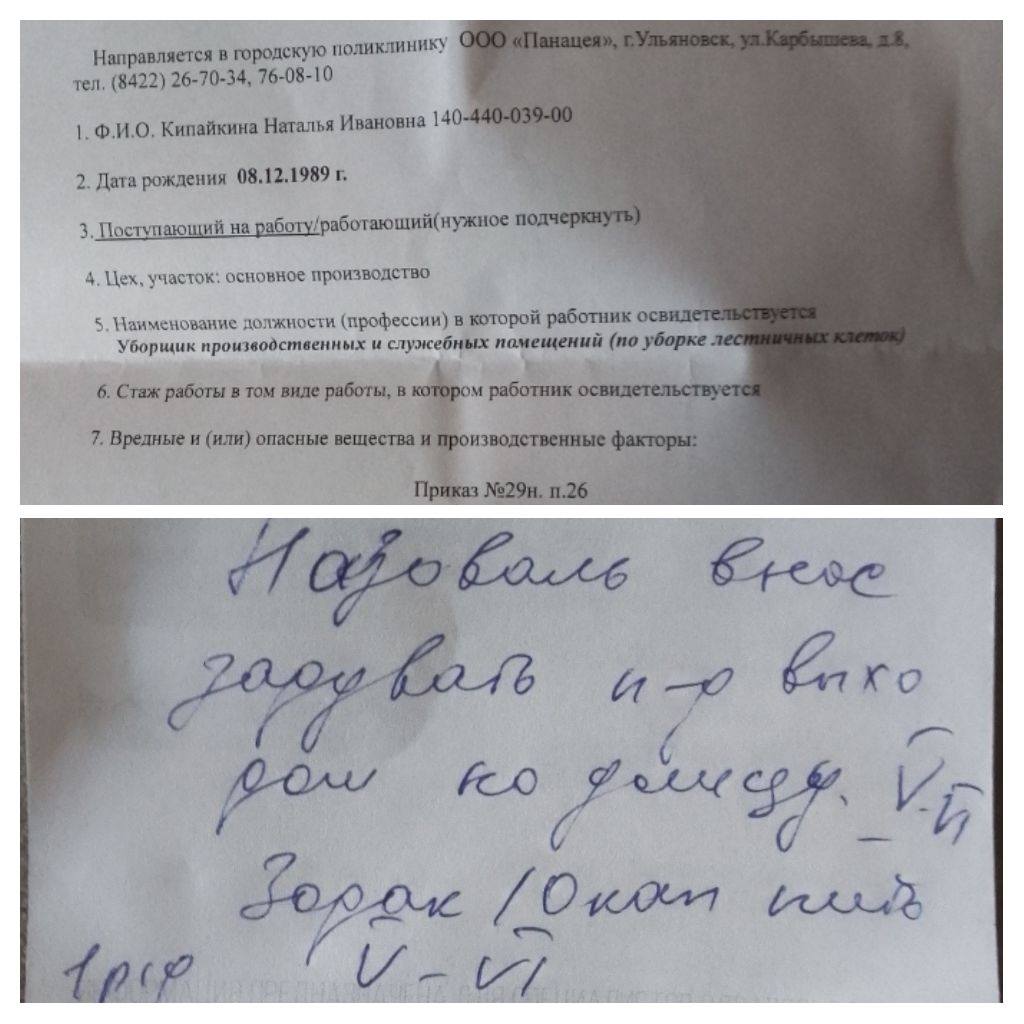 Направляется в городскую поликлинику ООО «Панацея», г.Ульяновск, ул.Карбышева, д.8,
тел. (8422) 26-70-34, 76-08-10
1. Ф.И.О. Кипайкина Наталья Ивановна 140-440-039-00
2. Дата рождения 08.12.1989 г.
3. Поступающий на работу/работающий(нужное подчеркнуть)
4. Цех, участок: основное производство
5. Наименование должности (профессии) в которой работник освидетельствуется
Уборщик производственных и служебных помещений (по уборке лестничных клеток)
6. Стаж работы в том виде работы, в котором работник освидетельствуется
7. Вредные и (или) опасные вещества и производственные факторы:
Приказ №29н. п.26
Назоваль в нос
п-р выхо
дом
V-VI
Зодак пить
V-VI